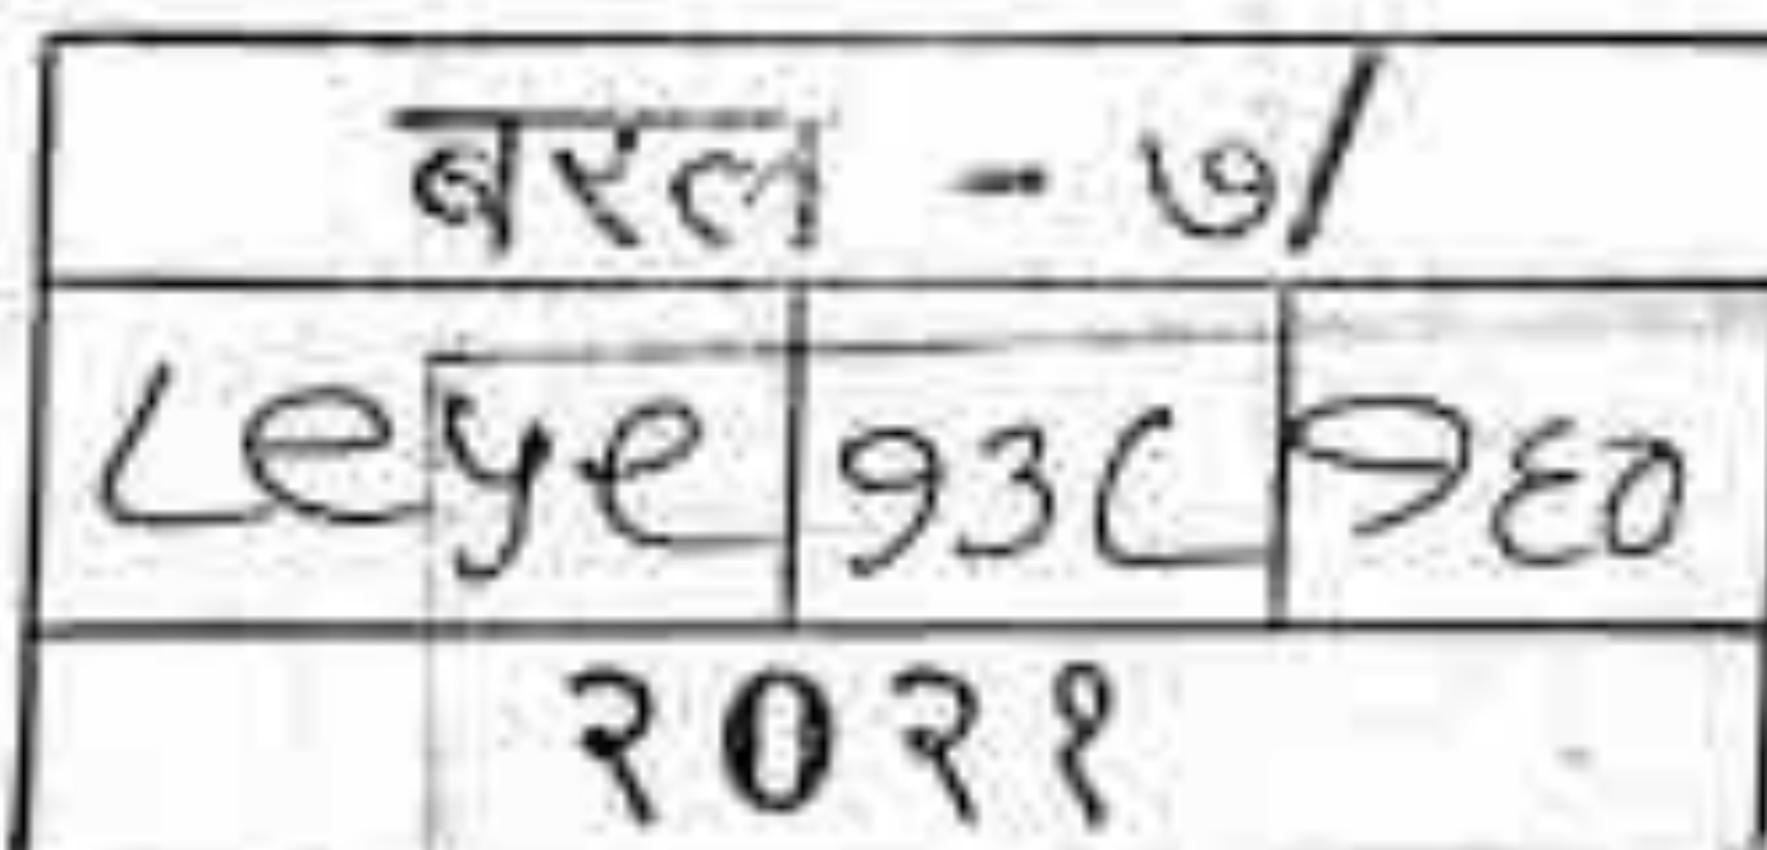 बरल - ७/
८९५९ १३८ १६०
२०२१